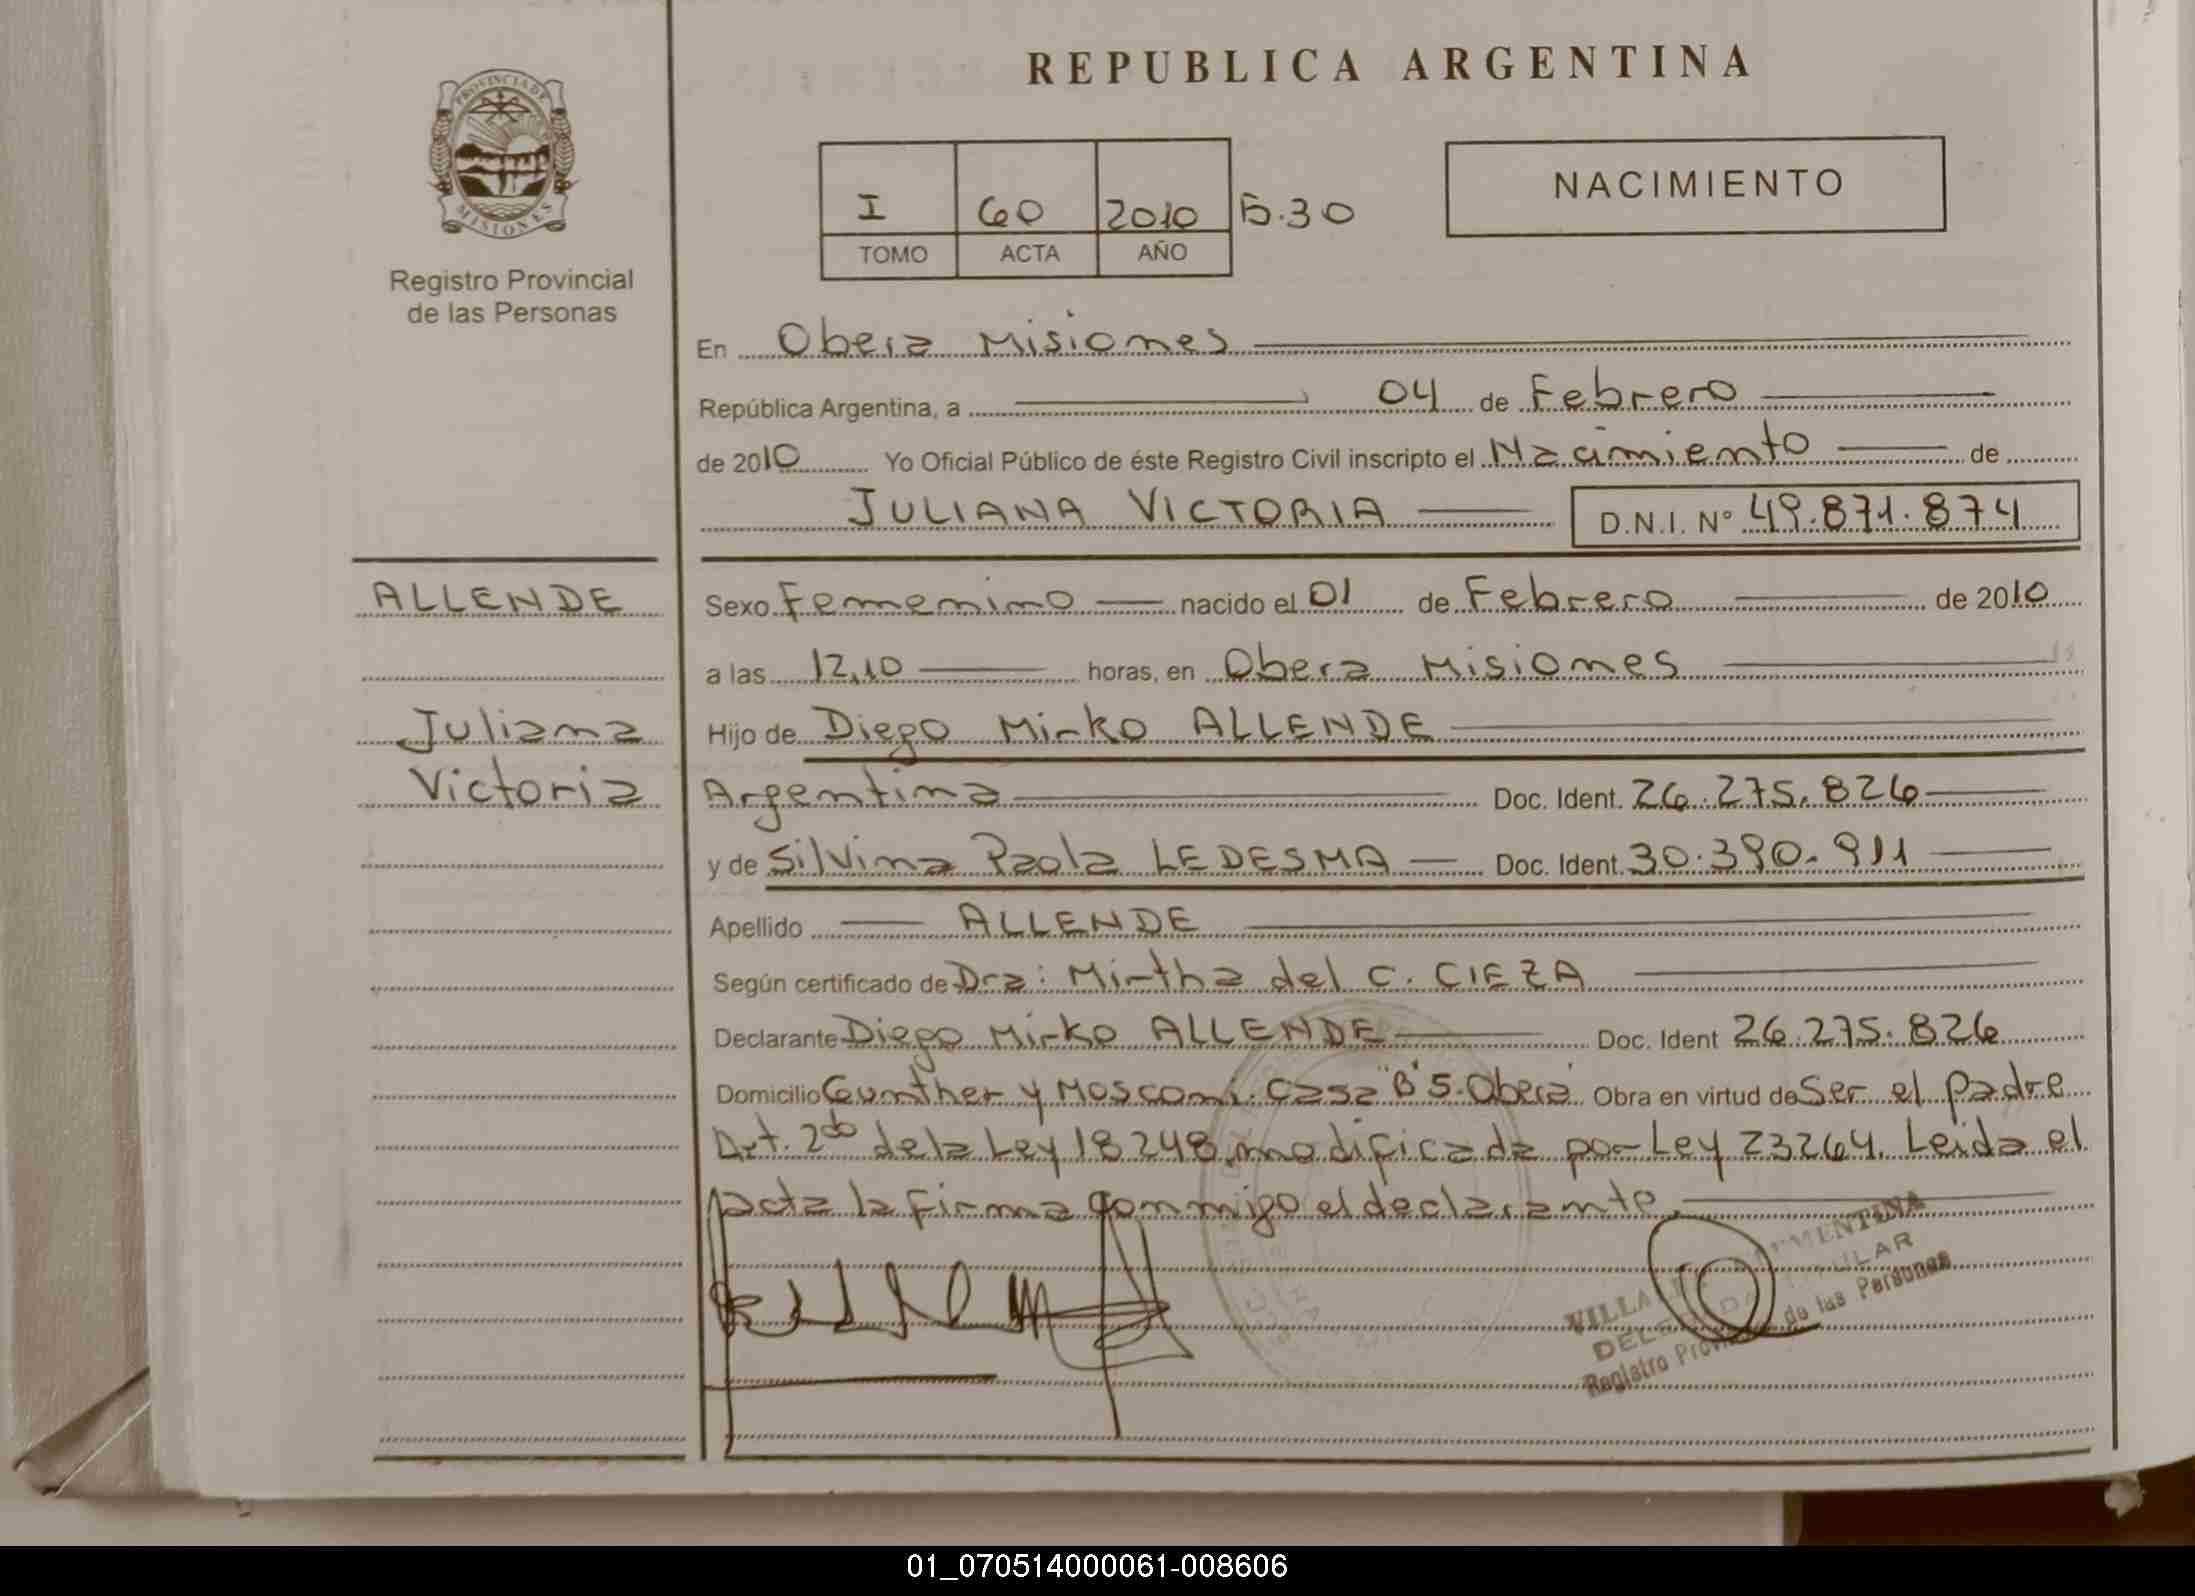 REPUBLICA ARGENTINA
PROVINCIA DE
MISIONES
Registro Provincial
de las Personas
I 60 2010 F.30
TOMO ACTA AÑO
NACIMIENTO
En Obera Misiones
República Argentina, a 04 de Febrero
de 2010 Yo Oficial Público de éste Registro Civil inscripto el Nacimiento de
JULIANA VICTORIA D.N.I. Nº 49.871.874
ALLENDE
Juliana
Victoria
Sexo Femenino nacido el 01 de Febrero de 2010
a las 12,10 horas, en Obera Misiones
Hijo de Diego Mirko ALLENDE
Argentina Doc. Ident. 26.275.826
y de Silvina Paola LEDESMA Doc. Ident. 30.390.911
Apellido ALLENDE
Según certificado de Dra: Mirtha del C. CIEZA
Declarante Diego Mirko ALLENDE Doc. Ident 26.275.826
Domicilio Gunther y Mosconi. Casa "B" 5. Oberá Obra en virtud de Ser el padre
Art. 2do de la Ley 18248, modificada por Ley 23264. Leida el
acta la firma conmigo el declarante.
Registro de las Personas
01_070514000061-008606